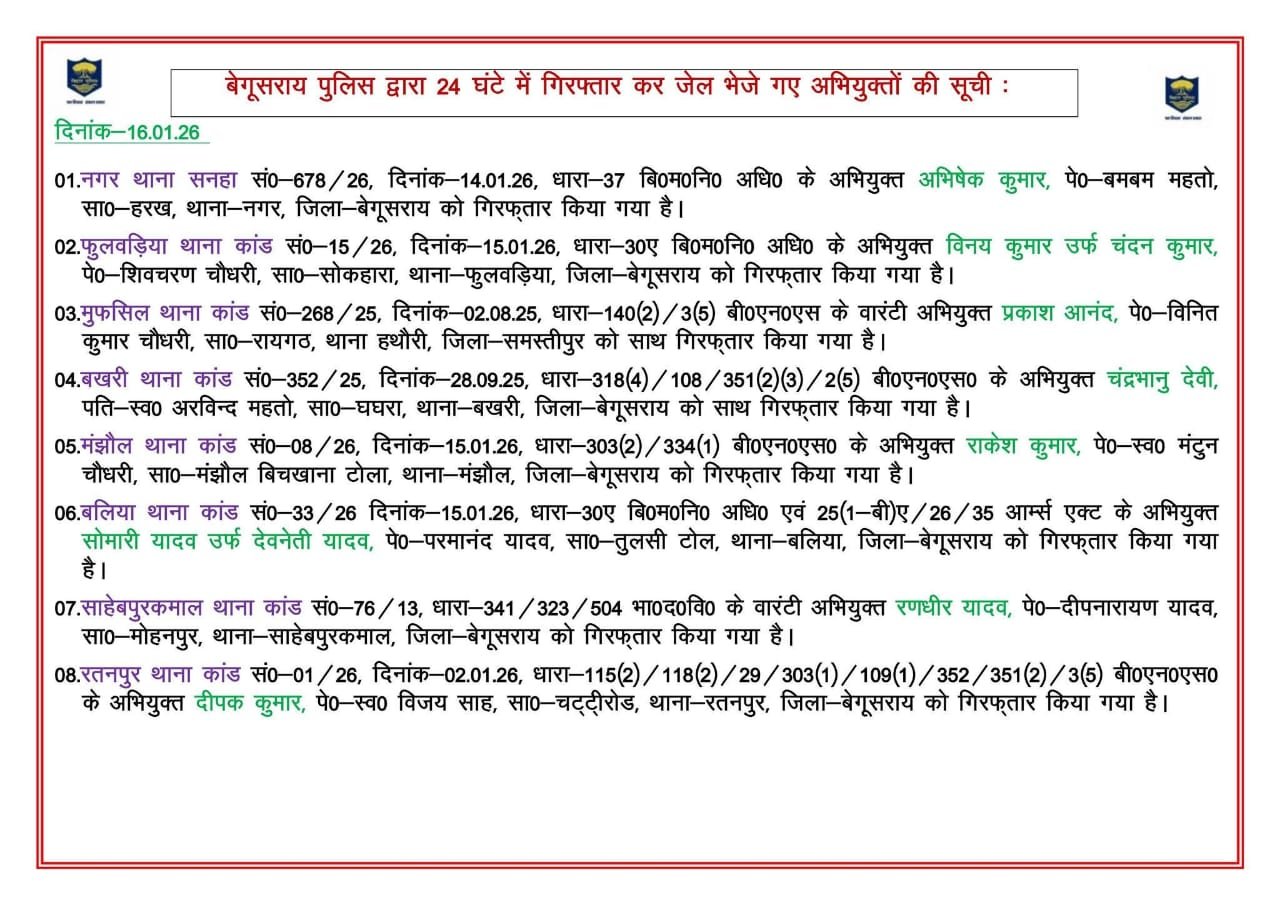 बेगूसराय पुलिस द्वारा 24 घंटे में गिरफ्तार कर जेल भेजे गए अभियुक्तों की सूची :
दिनांक–16.01.26
01.नगर थाना सनहा सं0–678/26, दिनांक–14.01.26, धारा–37 बि0म0नि0 अधि0 के अभियुक्त अभिषेक कुमार, पे0–बमबम महतो,
सा0–हरख, थाना–नगर, जिला–बेगूसराय को गिरफ्तार किया गया है।
02.फुलवड़िया थाना कांड सं0–15/26, दिनांक–15.01.26, धारा–30ए बि0म0नि0 अधि0 के अभियुक्त विनय कुमार उर्फ चंदन कुमार,
पे0–शिवचरण चौधरी, सा0–सोकहारा, थाना–फुलवड़िया, जिला–बेगूसराय को गिरफ्तार किया गया है।
03.मुफसिल थाना कांड सं0–268/25, दिनांक–02.08.25, धारा–140(2)/3(5) बी0एन0एस के वारंटी अभियुक्त प्रकाश आनंद, पे0–विनित
कुमार चौधरी, सा0–रायगठ, थाना हथौरी, जिला–समस्तीपुर को साथ गिरफ्तार किया गया है।
04.बखरी थाना कांड सं0–352/25, दिनांक–28.09.25, धारा–318(4)/108/351(2)(3)/2(5) बी0एन0एस0 के अभियुक्त चंद्रभानु देवी,
पति–स्व0 अरविन्द महतो, सा0–घघरा, थाना–बखरी, जिला–बेगूसराय को साथ गिरफ्तार किया गया है।
05.मंझौल थाना कांड सं0–08/26, दिनांक–15.01.26, धारा–303(2)/334(1) बी0एन0एस0 के अभियुक्त राकेश कुमार, पे0–स्व0 मंटुन
चौधरी, सा0–मंझौल बिचखाना टोला, थाना–मंझौल, जिला–बेगूसराय को गिरफ्तार किया गया है।
06.बलिया थाना कांड सं0–33/26 दिनांक–15.01.26, धारा–30ए बि0म0नि0 अधि0 एवं 25(1–बी)ए/26/35 आर्म्स एक्ट के अभियुक्त
सोमारी यादव उर्फ देवनेती यादव, पे0–परमानंद यादव, सा0–तुलसी टोल, थाना–बलिया, जिला–बेगूसराय को गिरफ्तार किया गया
है।
07.साहेबपुरकमाल थाना कांड सं0–76/13, धारा–341/323/504 भा0द0वि0 के वारंटी अभियुक्त रणधीर यादव, पे0–दीपनारायण यादव,
सा0–मोहनपुर, थाना–साहेबपुरकमाल, जिला–बेगूसराय को गिरफ्तार किया गया है।
08.रतनपुर थाना कांड सं0–01/26, दिनांक–02.01.26, धारा–115(2)/118(2)/29/303(1)/109(1)/352/351(2)/3(5) बी0एन0एस0
के अभियुक्त दीपक कुमार, पे0–स्व0 विजय साह, सा0–चट्टीरोड, थाना–रतनपुर, जिला–बेगूसराय को गिरफ्तार किया गया है।